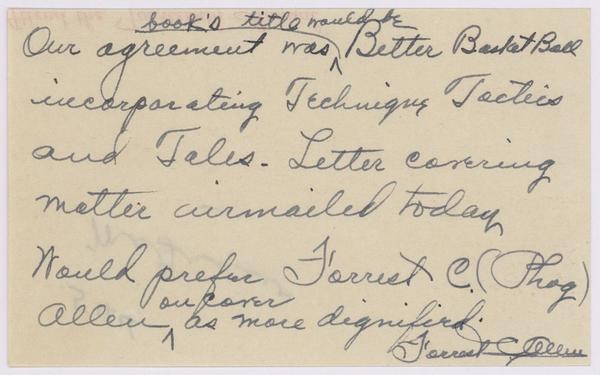 book's title would be
Our agreement was ^ Better Basket Ball
incorporating Technique Tactics
and Tales. Letter covering
matter airmailed today
Would prefer Forrest C. (Phog)
on cover
Allen ^ as more dignified.
Forrest C. Allen